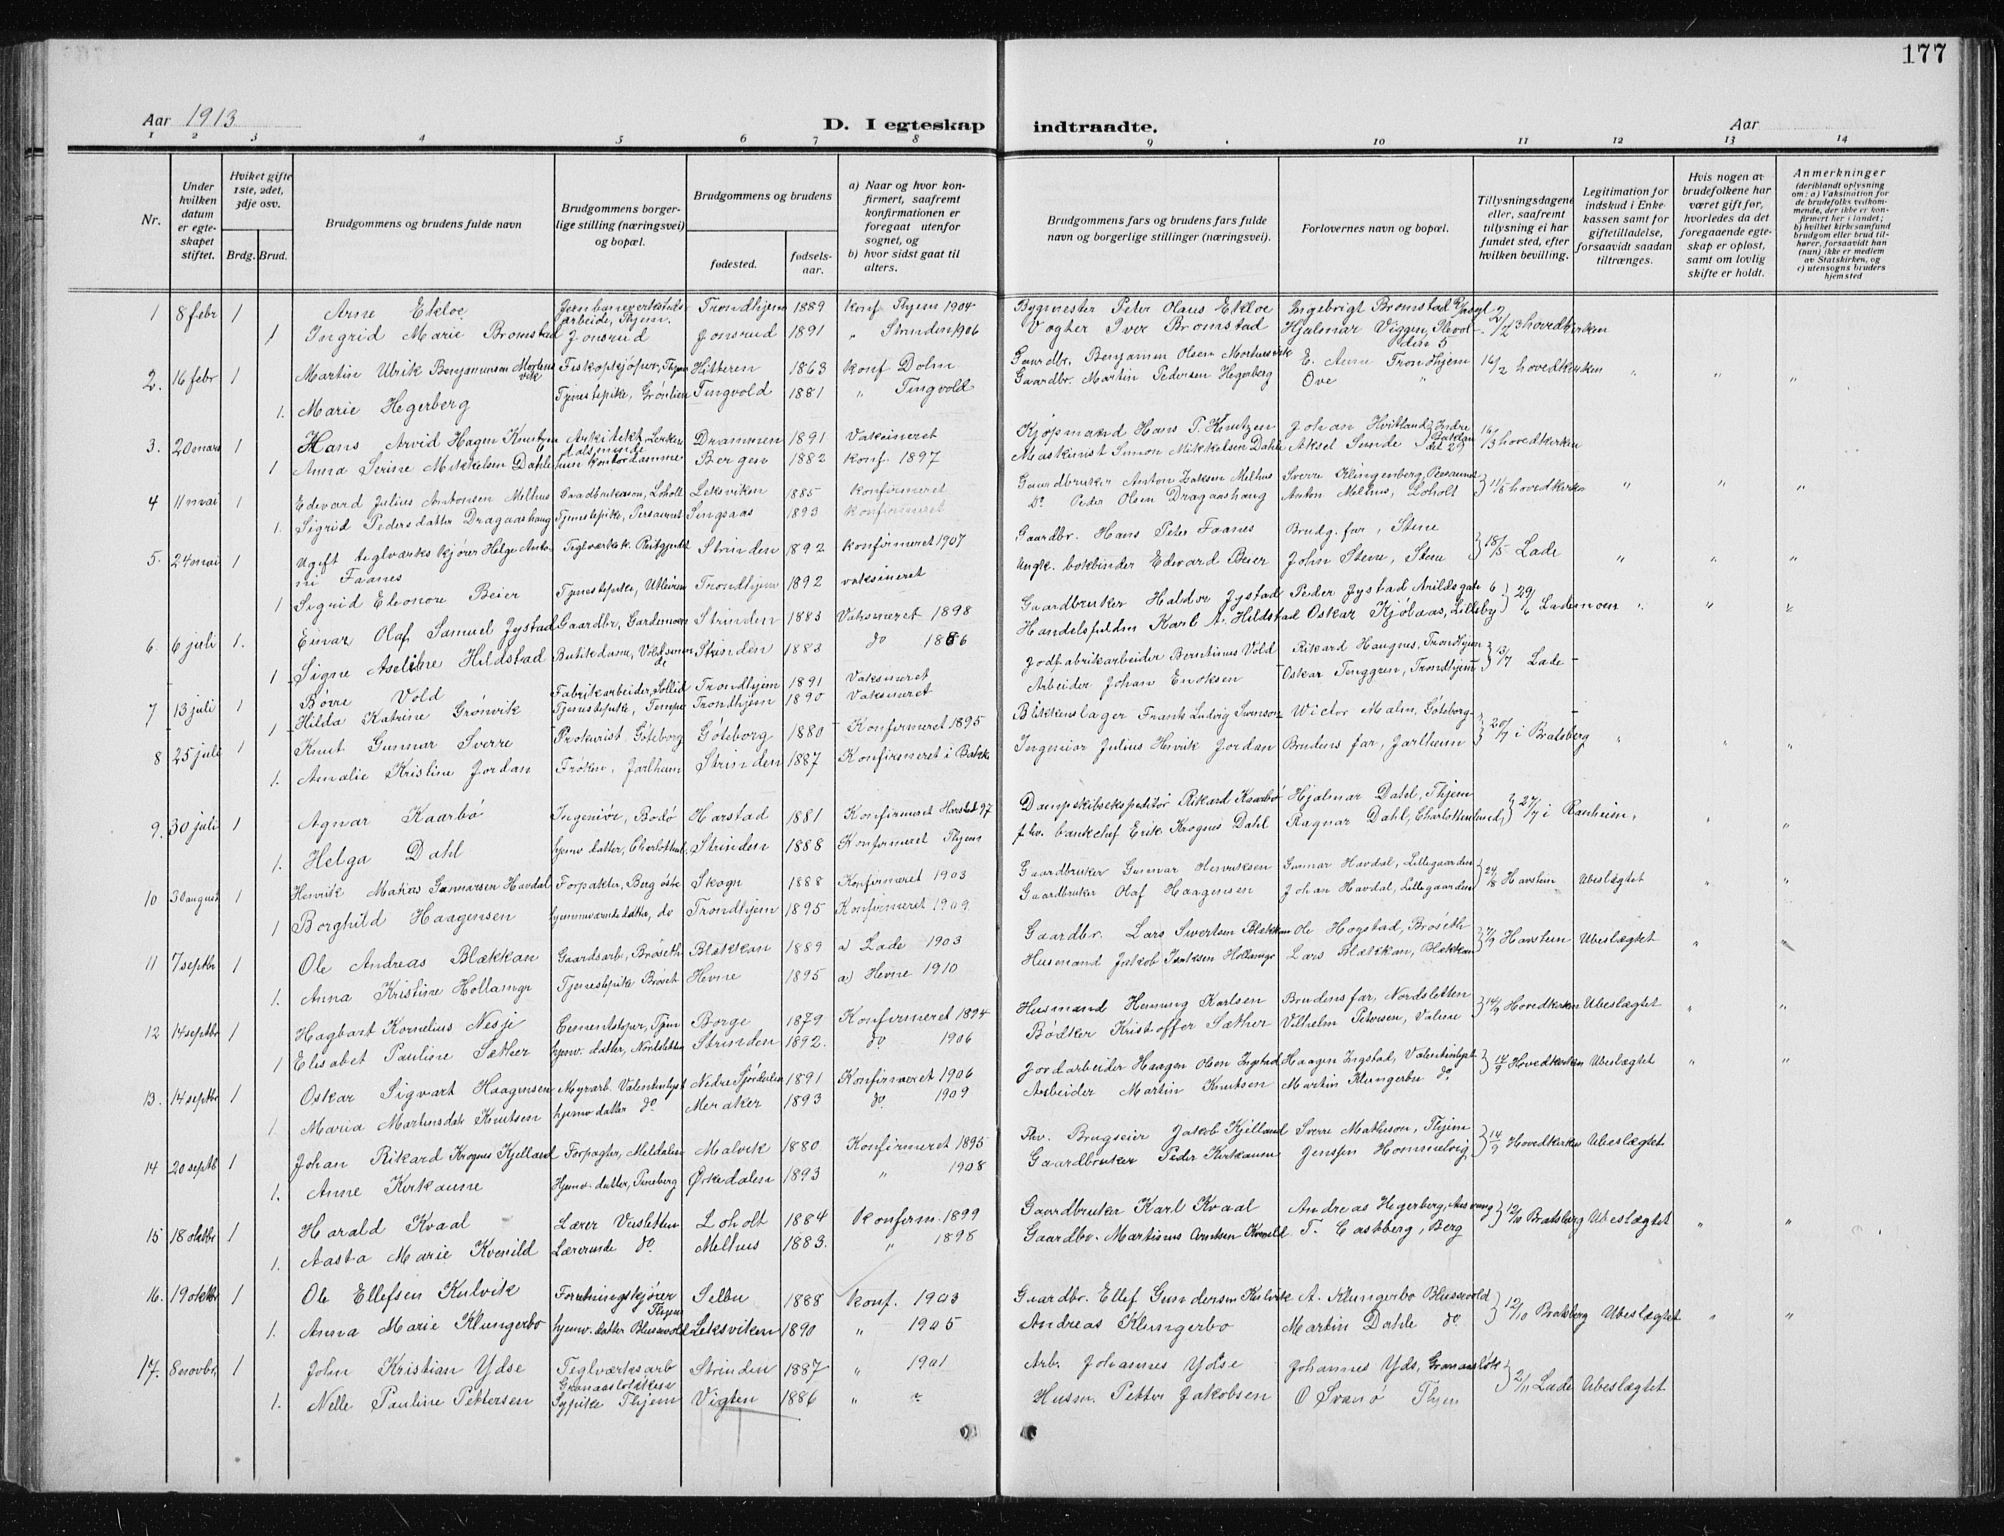 177
Aar 1913
D. I egteskap indtraadte.
Aar
1 2 3 4 5 6 7 8 9 10 11 12 13 14
Nr.
Under hvilken datum er egteskapet stiftet.
Hviket gifte 1ste, 2det, 3dje osv.
Brdg. Brud.
Brudgommens og brudens fulde navn
Brudgommens borgerlige stilling (næringsvei) og bopæl.
Brudgommens og brudens
fødested.
fødselsaar.
a) Naar og hvor konfirmert, saafremt konfirmationen er foregaat utenfor sognet, og
b) hvor sidst gaat til alters.
Brudgommens fars og brudens fars fulde navn og borgerlige stillinger (næringsvei).
Forlovernes navn og bopæl.
Tillysningsdagene eller, saafremt tillysning ei har fundet sted, efter hvilken bevilling.
Legitimation for indskud i Enkekassen samt for giftetilladelse, forsaavidt saadan tiltrænges.
Hvis nogen av brudefolkene har været gift før, hvorledes da det foregaaende egteskap er opløst, samt om lovlig skifte er holdt.
Anmerkninger
(deriblandt oplysning om: a) Vaksination for de brudefolks vedkommende, der ikke er konfirmert her i landet; b) hvilket kirkesamfund brudgom eller brud tilhører, forsaavidt han (hun) ikke er medlem av Statskirken, og c) utensogns bruders hjemsted
1 8 febr 1 Arne Ekloe Trondhjem 1889 konf Thjem 1904 Bygmester Peter Olaus Ekloe Ingebrigt Bromstad
1 Ingrid Marie Bromstad Jonsrud Jonsrud 1891 " Strinden 1906 Vogter Iver Bromstad Hjalmar Viggen 2/2 13 hovedkirken
2. 16 febr 1 Martin Ulrik Benjaminsen Mortensvik Fiskopkjøper, Thjem Hitteren 1863 konf Dolm Gaardbr. Benjamin Olsen Mortensvik E. Aune Trondhjem 16/2 hovedkirken " " "
1. Marie Hegerberg Tjenestepike, Grønlien Tingvold 1881 " Tingvold Gaardbr. Martin Pedersen Hegerberg Ove "
3. 20 mars 1 Hans Arvid Hagen Knutzen Arkitekt Drammen 1891 Vaksineret Kjøpmand Hans T. Knutzen Johan Hvitland 16/3 hovedkirken
1 Anna Serine Mikkelsen Dahle Bergen 1882 konf. 1897 Maskinist Simon Mikkelsen Dahle Aksel Sunde
4 11 mai 1 Edevard Julius Antonsen Melhus Gaardbrukersøn, Loholt Leksviken 1885 konfirmeret Gaardbruker Anton Melhus Sverre Klingenberg, Persaunet 11/5 hovedkirken " " "
1. Sigrid Pedersdatter Dragaashaug Tjenestepike, Persaunet Singsaas 1893 konfirmeret Do Peder Olsen Dragaashaug Anton Melhus, Loholt
5. 24 mai 1 Ugift teglværkskjører Helge Antoni Faanes Strinden 1892 konfirmeret 1907 Gaardbr. Hans Peter Faanes Brudg. far, Stene 18/5 Lade " " "
1 Sigrid Eleonore Beier Tjenestepike, Trondhjem 1892 vaksineret Ungk. bokbinder Edevard Beier John Stene, Stene
6. 6 juli 1. Einar Olaf Samuel Jystad Gaardbr, Gardemoen Strinden 1883 Vaksineret 1898 Gaardbruker Haldor Jystad Peder Jystad Arildsgate 6 29/6 Lademoen " " "
1 Signe Aseline Hildstad Butikdame, Strinden 1883 do 1886 Karl A. Hildstad Oskar Kjöbaas, Lilleby
7 13 juli 1 Børre Vold Fabrikarbeider, Trondhjem 1891 Vaksineret Jodfabrikarbeider Berntinus Vold Rikard Haugnes, Trondhjem 13/7 Lade
1 Hilda Katrine Grønvik Tjenestepike, Tempe Trondhjem 1890 Vaksineret Arbeider Johan Enoksen Oskar Tenggren, Trondhjem
8 25 juli 1 Knut Gunnar Sverre Prokurist Göteborg Göteborg 1880 Konfirmeret 1895 Blikkenslager Frants Ludvig Svenson Victor Malm, Göteborg 20/7 i Bratsberg " " "
1. Amalie Kristine Jordan Frøken, Jarlheim Strinden 1887 Konfirmeret i Bakke Ingeniør Julius Henrik Jordan Brudens far, Jarlheim
9. 30 juli 1 Agnar Kaarbö Ingeniør, Bodö Harstad 1881 Konfirmeret Harstad 97 Dampskibsekspeditör Rikard Kaarbö Hjalmar Dahl, Thjem 27/7 i Ranheim, " "
1. Helga Dahl hjemv. datter, Charlottenl. Strinden 1888 Konfirmeret Thjem f. hv. bankchef Erik Krognes Dahl Ragnar Dahl, Charlottenlund,
10 30 august 1 Henrik Matias Gunnarsen Havdal Forpakter, Berg östre Skogn 1888 Konfirmeret 1903 Gaardbruker Gunnar Henriksen Gunnar Havdal, Lillegaarden 24/8 Havstein Ubeslægtet " "
1 Borghild Haagensen hjemmeværende datter, do Trondhjem 1895 Konfirmeret 1909. Gaardbruker Olaf Haagensen Johan Havdal, Lillegaarden
11 7 septbr 1 Ole Andreas Blækkan Gaardsarb, Bröseth Blækkan 1889 a) Lade 1903 Gaardbr. Lars Sivertsen Blækkan Ole Hogstad, Bröseth 7/9 Havstein Ubeslægtet " "
1. Anna Kristine Hollamgr Tjenestepike Bröset Hevne 1895 a) Hevne 1910 Husmand Jakob Isaksen Hollamgr Lars Blækkan, Blækkan
12 14 septbr 1 Hagbart Kornelius Nesje Cementstøper, Tjem Borge 1879 Konfirmeret 1894 Husmand Henning Karlsen Brudens far, Nordsletten 14/9 Hovedkirken Ubeslægtet " "
1 Elisabet Pauline Sæther hjemv. datter, Nordsletten Strinden 1892. do 1906 Bödker Kristoffer Sæther Vilhelm Petersen, Valene
13. 14 septbr 1 Oskar Sigvart Haagensen Myrarb. Valentinlyst Nedre Stjördalen 1891 Konfirmeret 1906 Jordarbeider Haagen Olsen Ingstad Haagen Ingstad, Valentinlyst 14/9 Hovedkirken Ubeslægtet " "
1. Maria Martinsdatr Knutsen hjemv datter do Meraker 1893 do 1909 Arbeider Martin Knutsen Martin Klungerbo do
14 20 septb 1 Johan Rikard Krognes Kjelland Forpagter, Meldalen Malvik 1880 Konfirmeret 1895 Fhv. Brugseier Jakob Kjelland Sverre Matheson, Thjem 14/9 Hovedkirken Ubeslægtet
1. Anne Kirkaune Hjemv. datter, Tuneberg Ørkedalen 1893 " 1908 Gaardbruker Peder Kirkaune Jenssen Hommelvig
15 18 oktbr 1 Harald Kvaal Lærer Veisletten Loholt 1884 Konfirm. 1899 Gaardbruker Karl Kvaal Andreas Hegerberg, 12/10 Bratsberg Ubeslægtet " "
1. Aasta Marie Kvenild Lærerinde do Melhus 1883. " 1898 Gaardbr. Martinus Arntsen Kvenild T. Castberg, Berg
16. 19 oktbr 1 Ole Ellefsen Kulvik Forretningskjører Thjem Selbu 1888 Konf. 1903 Gaardbr. Ellef Gundersen Kulvik A. Klungerbo Blussevold 12/10 Bratsberg Ubeslægtet " "
1. Anna Marie Klungerbo hjemv. datter Blussevold Leksviken 1890 " 1905 Andreas Klungerbo Martin Dahle do
17. 8 novbr. 1 John Kristian Ydse Teglværksarb Strinden 1887 " 1901 Arb. Johannes Ydse Johannes Yds, 2/11 Lade Ubeslægtet
1. Nelle Pauline Pettersen Sypike Thjem Vigten 1886 " ? Husm. Petter Jakobsen O Svanö Thjem